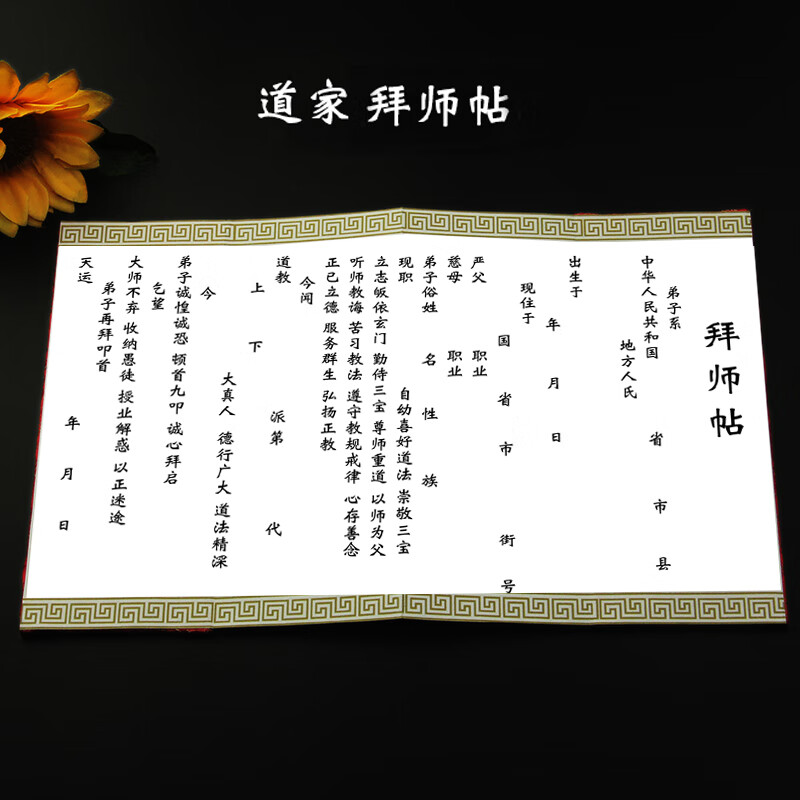 道家拜师帖
拜师帖
弟子系
中华人民共和国 省 市 县
地方人氏
出生于
年 月 日
现住于
国 省 市 街 号
严父 职业
慈母 职业
弟子俗姓 名 性 族
现职 自幼喜好道法 崇敬三宝
立志皈依玄门 勤侍三宝 尊师重道 以师为父
听师教诲 苦习教法 遵守教规戒律 心存善念
正己立德 服务群生 弘扬正教
今闻
道教 派第 代
上 下
大真人 德行广大 道法精深
今
弟子诚惶诚恐 顿首九叩 诚心拜启
乞望
大师不弃 收纳愚徒 授业解惑 以正迷途
弟子再拜叩首
天运 年 月 日